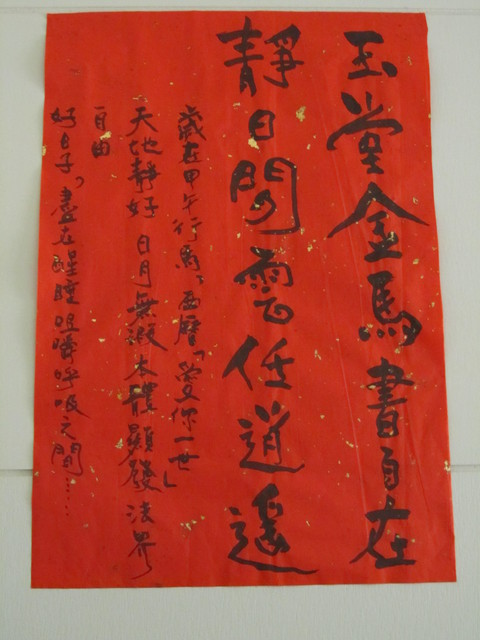 玉堂金馬書自在
靜日閒雲任逍遙
歲在甲午行馬，西曆「愛你一世」
天地靜好 日月無瑕本體顯發法界
自由
好日子，盡在醒睡咀嚼呼吸之間……